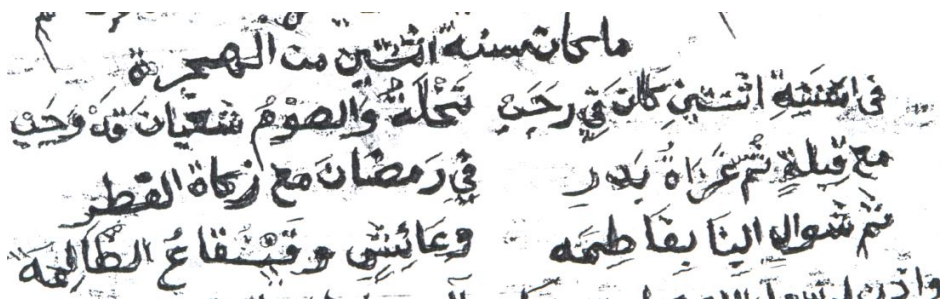 ما كان سنة اثنتين من الهجرة
في اثنتين كان في رجب نخلة والصوم شعبان قد وجب
مع قبلة ثم غزاة بدر في رمضان مع زكاة الفطر
ثم شوال البنا بفاطمه وعائش وقينقاع الظالمة